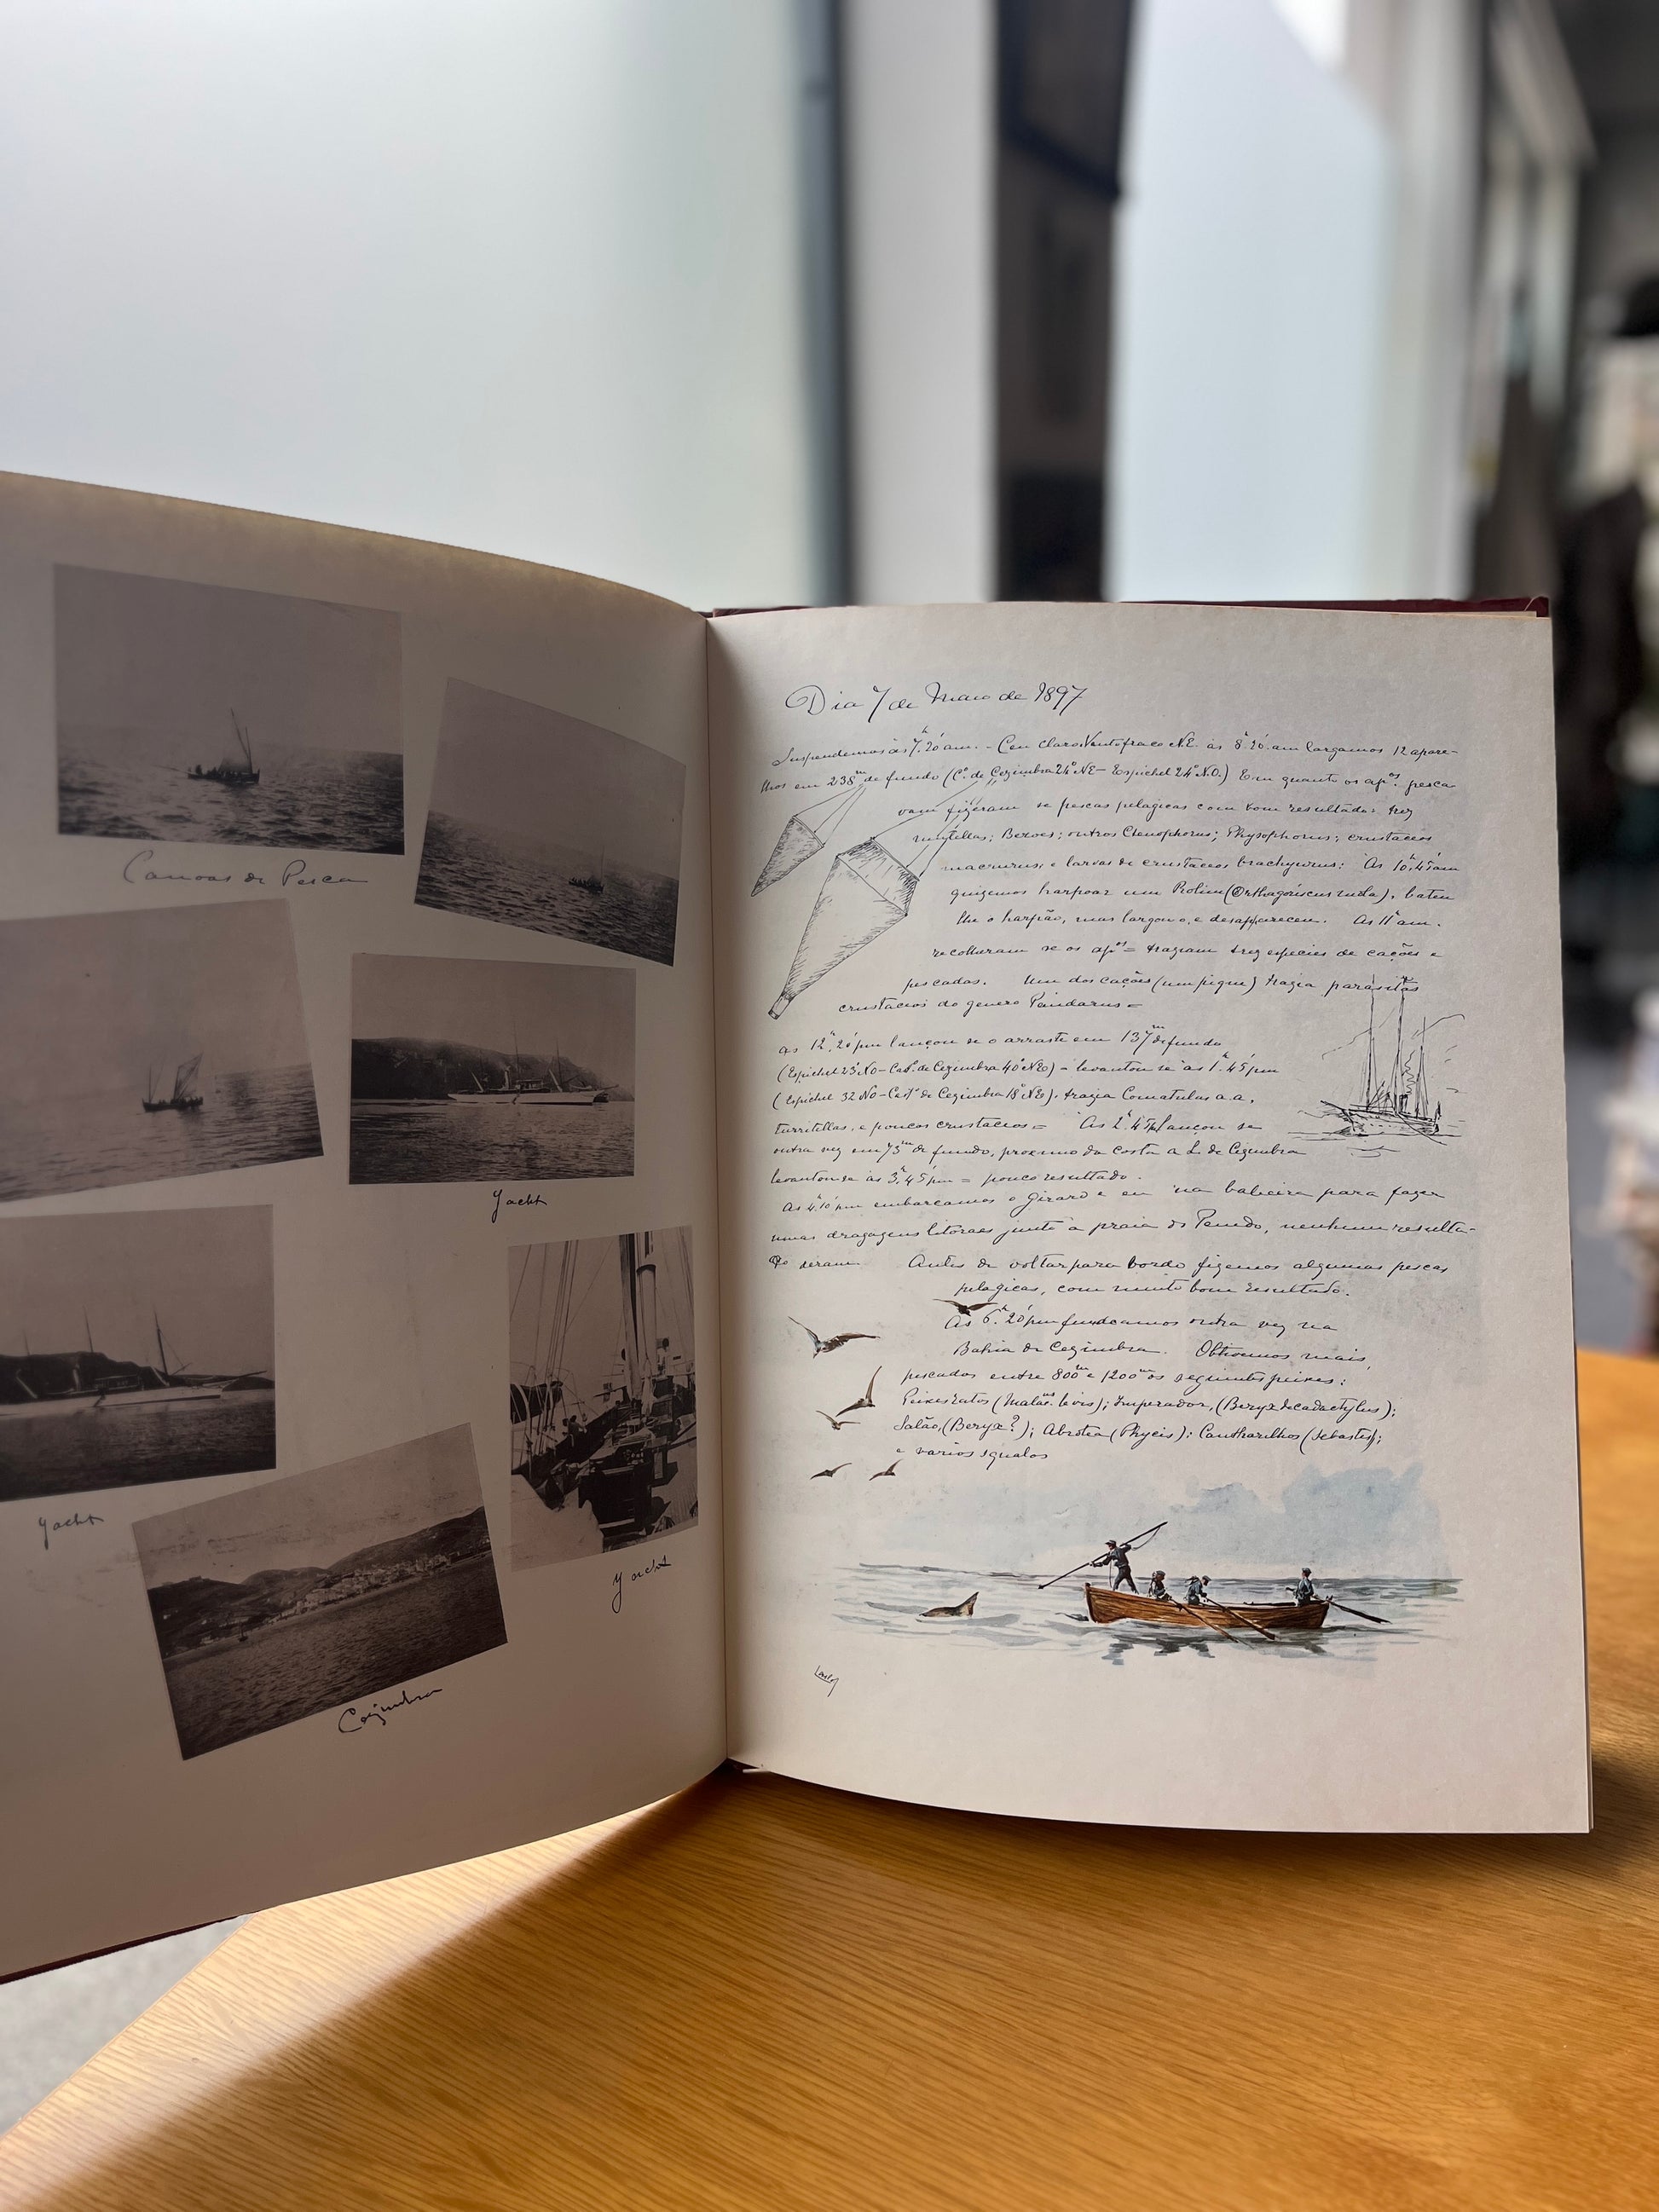 Canoas de Pesca
Yacht
Yacht
Yacht
Cezimbra
Dia 7 de Maio de 1897
Suspendemos ás 7.h20 am. - Ceu claro, Vento fraco NE. ás 8.h20 am largamos 12 apare-
lhos em 238m de fundo (Co. de Cezimbra 24° NE - Espichel 24° N.O.) Em quanto os apos. pesca
vam fizeram se pescas pelagicas com bom resultado: trez
Beroes; outros Ctenophorus; Physophorus; crustaceos
macrurus; e larvas de crustaceos brachyurus: As 10.h45 am
quizemos harpoar um Rolim (Orthagoriscus mola), bateu
lhe o harpão, mas largou o, e desappareceu. As 11h am.
recolheram se os apos = traziam trez especies de cações e
pescadas. Um dos cações (um pique) trazia parasitas
crustaceos do genero Pandarus =
As 12.h20 pm lançou se o arraste em 137m de fundo
(Espichel 23° NO - Cast. de Cezimbra 40° NE) - levantou se ás 1.h45 pm
(Espichel 32 NO - Casto de Cezimbra 18° NE). trazia Comatulas a.a.
turritellas, e poucos crustaceos = As 2.h45 pm lançou se
outra vez em 73m de fundo, proximo da costa a L. de Cezimbra
levantou se ás 3.h45 pm = pouco resultado.
As 4.h10 pm embarcamos o Girard e eu na baleeira para fazer
umas dragagens litoraes junto á praia do Penedo, nenhum resulta-
do deram. Antes de voltar para bordo fizemos algumas pescas
pelagicas, com muito bom resultado.
As 6.h20 pm fundeamos outra vez na
Bahia de Cezimbra. Obtivemos mais,
pescados entre 800m e 1200m os seguintes peixes:
Peixes ratos (Malac.us lævis); Imperador, (Beryx decadactylus);
Salão, (Beryx?); Abrotea (Phycis); Cantharilhos (Sebastes);
e varios squalos